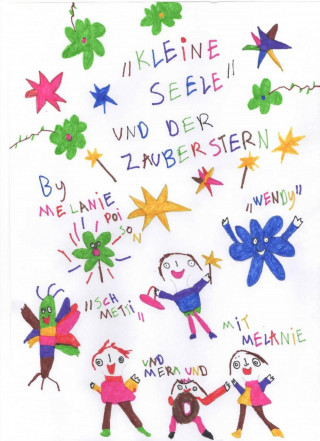 „KLEINE
SEELE"
UND DER
ZAUBERSTERN
By
MELANIE
POI
SON
„WENDY"
„SCH
METTI"
MIT
MELANIE
UND
MERA UND